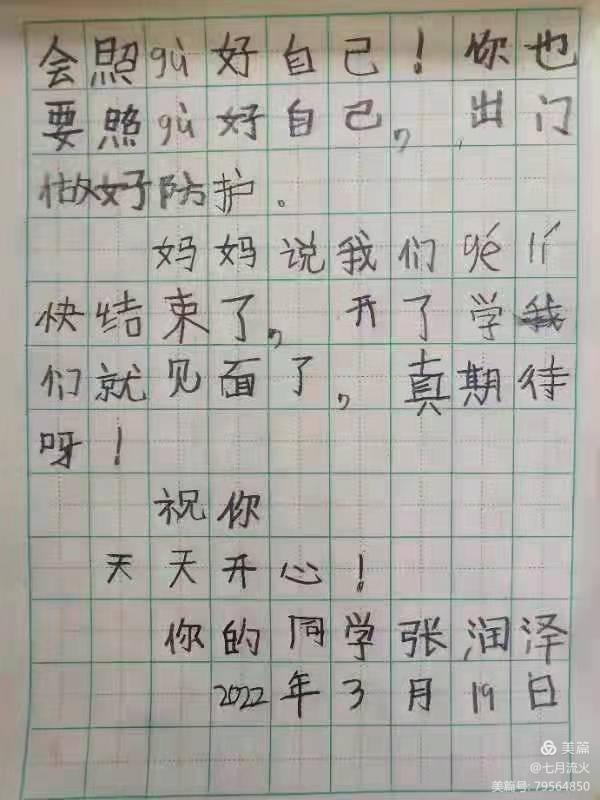 会照gù好自己！你也
要照gù好自己，出门
做好防护。
妈妈说我们gé lí
快结束了，开了学我
们就见面了，真期待
呀！
祝你
天天开心！
你的同学张润泽
2022年3月19日
美篇
@七月流火
美篇号: 79564850